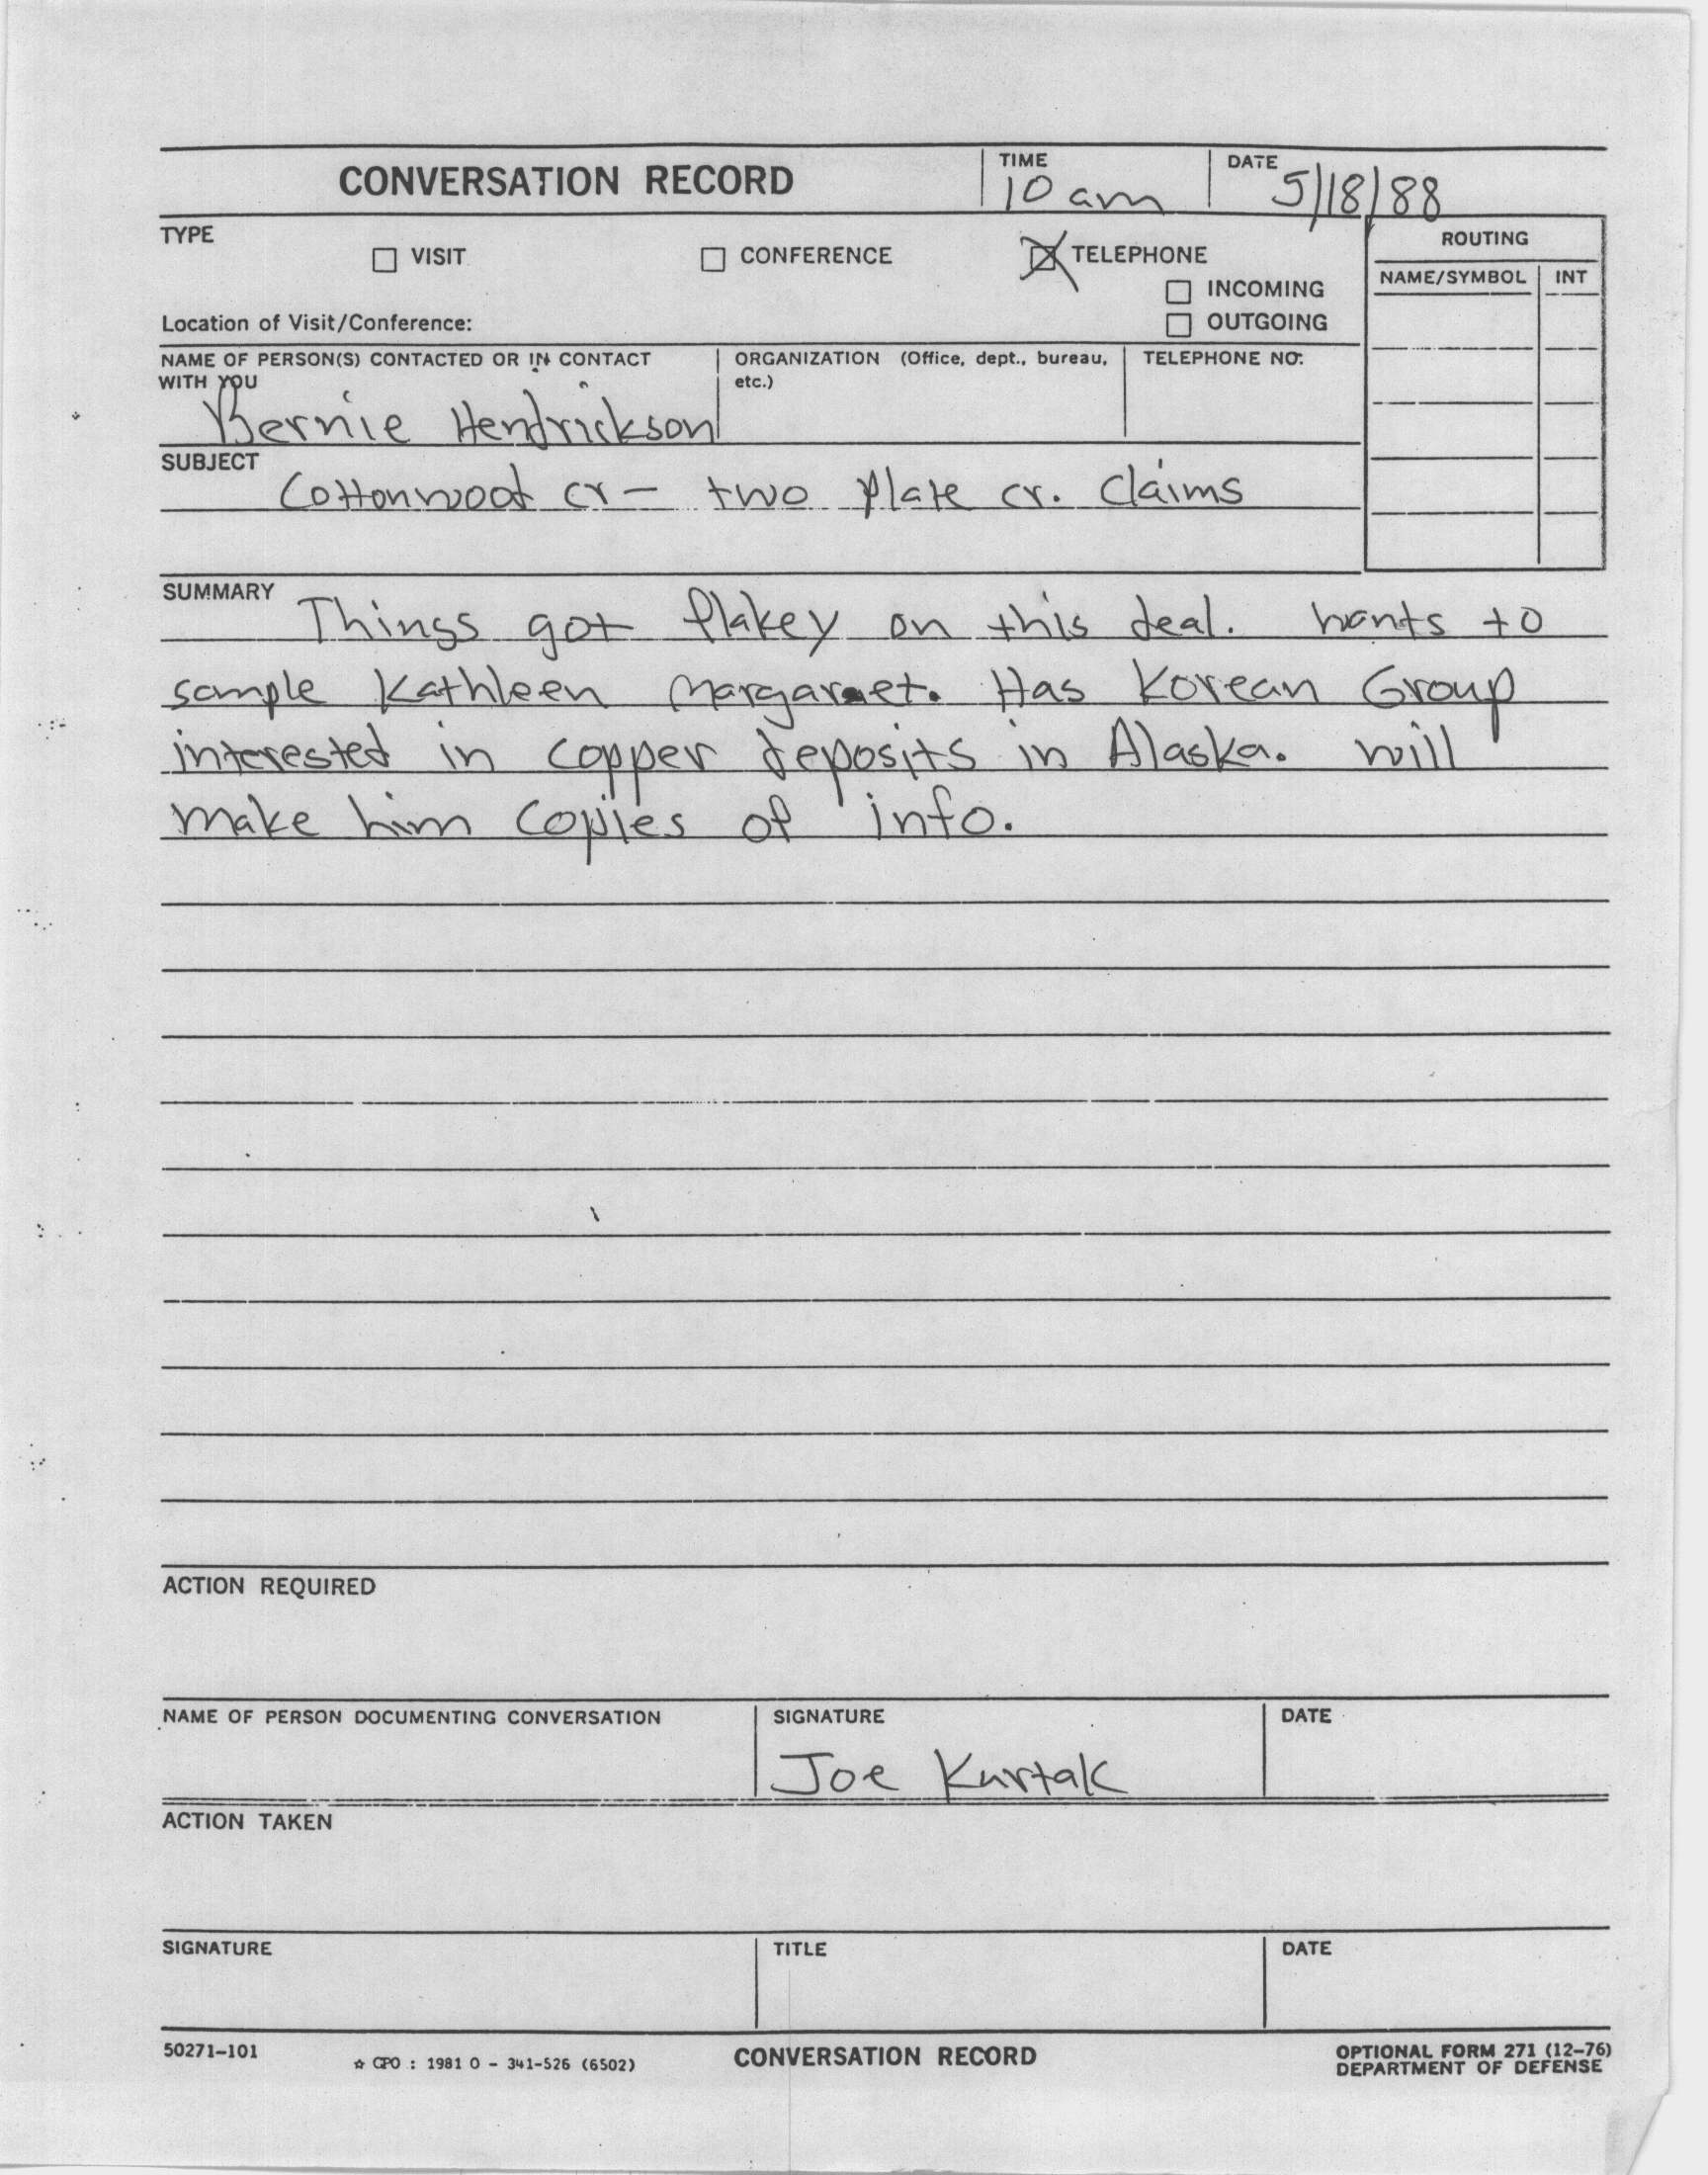 CONVERSATION RECORD
TIME
10 am
DATE
5/18/88
TYPE
VISIT
CONFERENCE
TELEPHONE
INCOMING
OUTGOING
Location of Visit/Conference:
ROUTING
NAME/SYMBOL INT
NAME OF PERSON(S) CONTACTED OR IN CONTACT
WITH YOU
Bernie Hendrickson
ORGANIZATION (Office, dept., bureau,
etc.)
TELEPHONE NO.
SUBJECT
Cottonwood cr - two plate cr. Claims
SUMMARY
Things got flakey on this deal. wants to
sample Kathleen Margaret. Has Korean Group
interested in copper deposits in Alaska. will
make him copies of info.
ACTION REQUIRED
NAME OF PERSON DOCUMENTING CONVERSATION
SIGNATURE
Joe Kurtak
DATE
ACTION TAKEN
SIGNATURE
TITLE
DATE
50271-101
☆ GPO : 1981 O - 341-526 (6502)
CONVERSATION RECORD
OPTIONAL FORM 271 (12-76)
DEPARTMENT OF DEFENSE